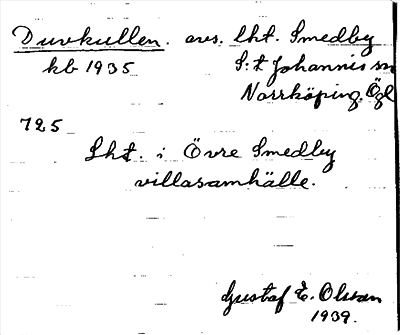 Duvkullen. avs. lht. Smedby
kb 1935 S:t Johannis sn
Norrköping. Ögl
725
Lht. i Övre Smedby
villasamhälle.
Gustaf E. Olsson
1939.